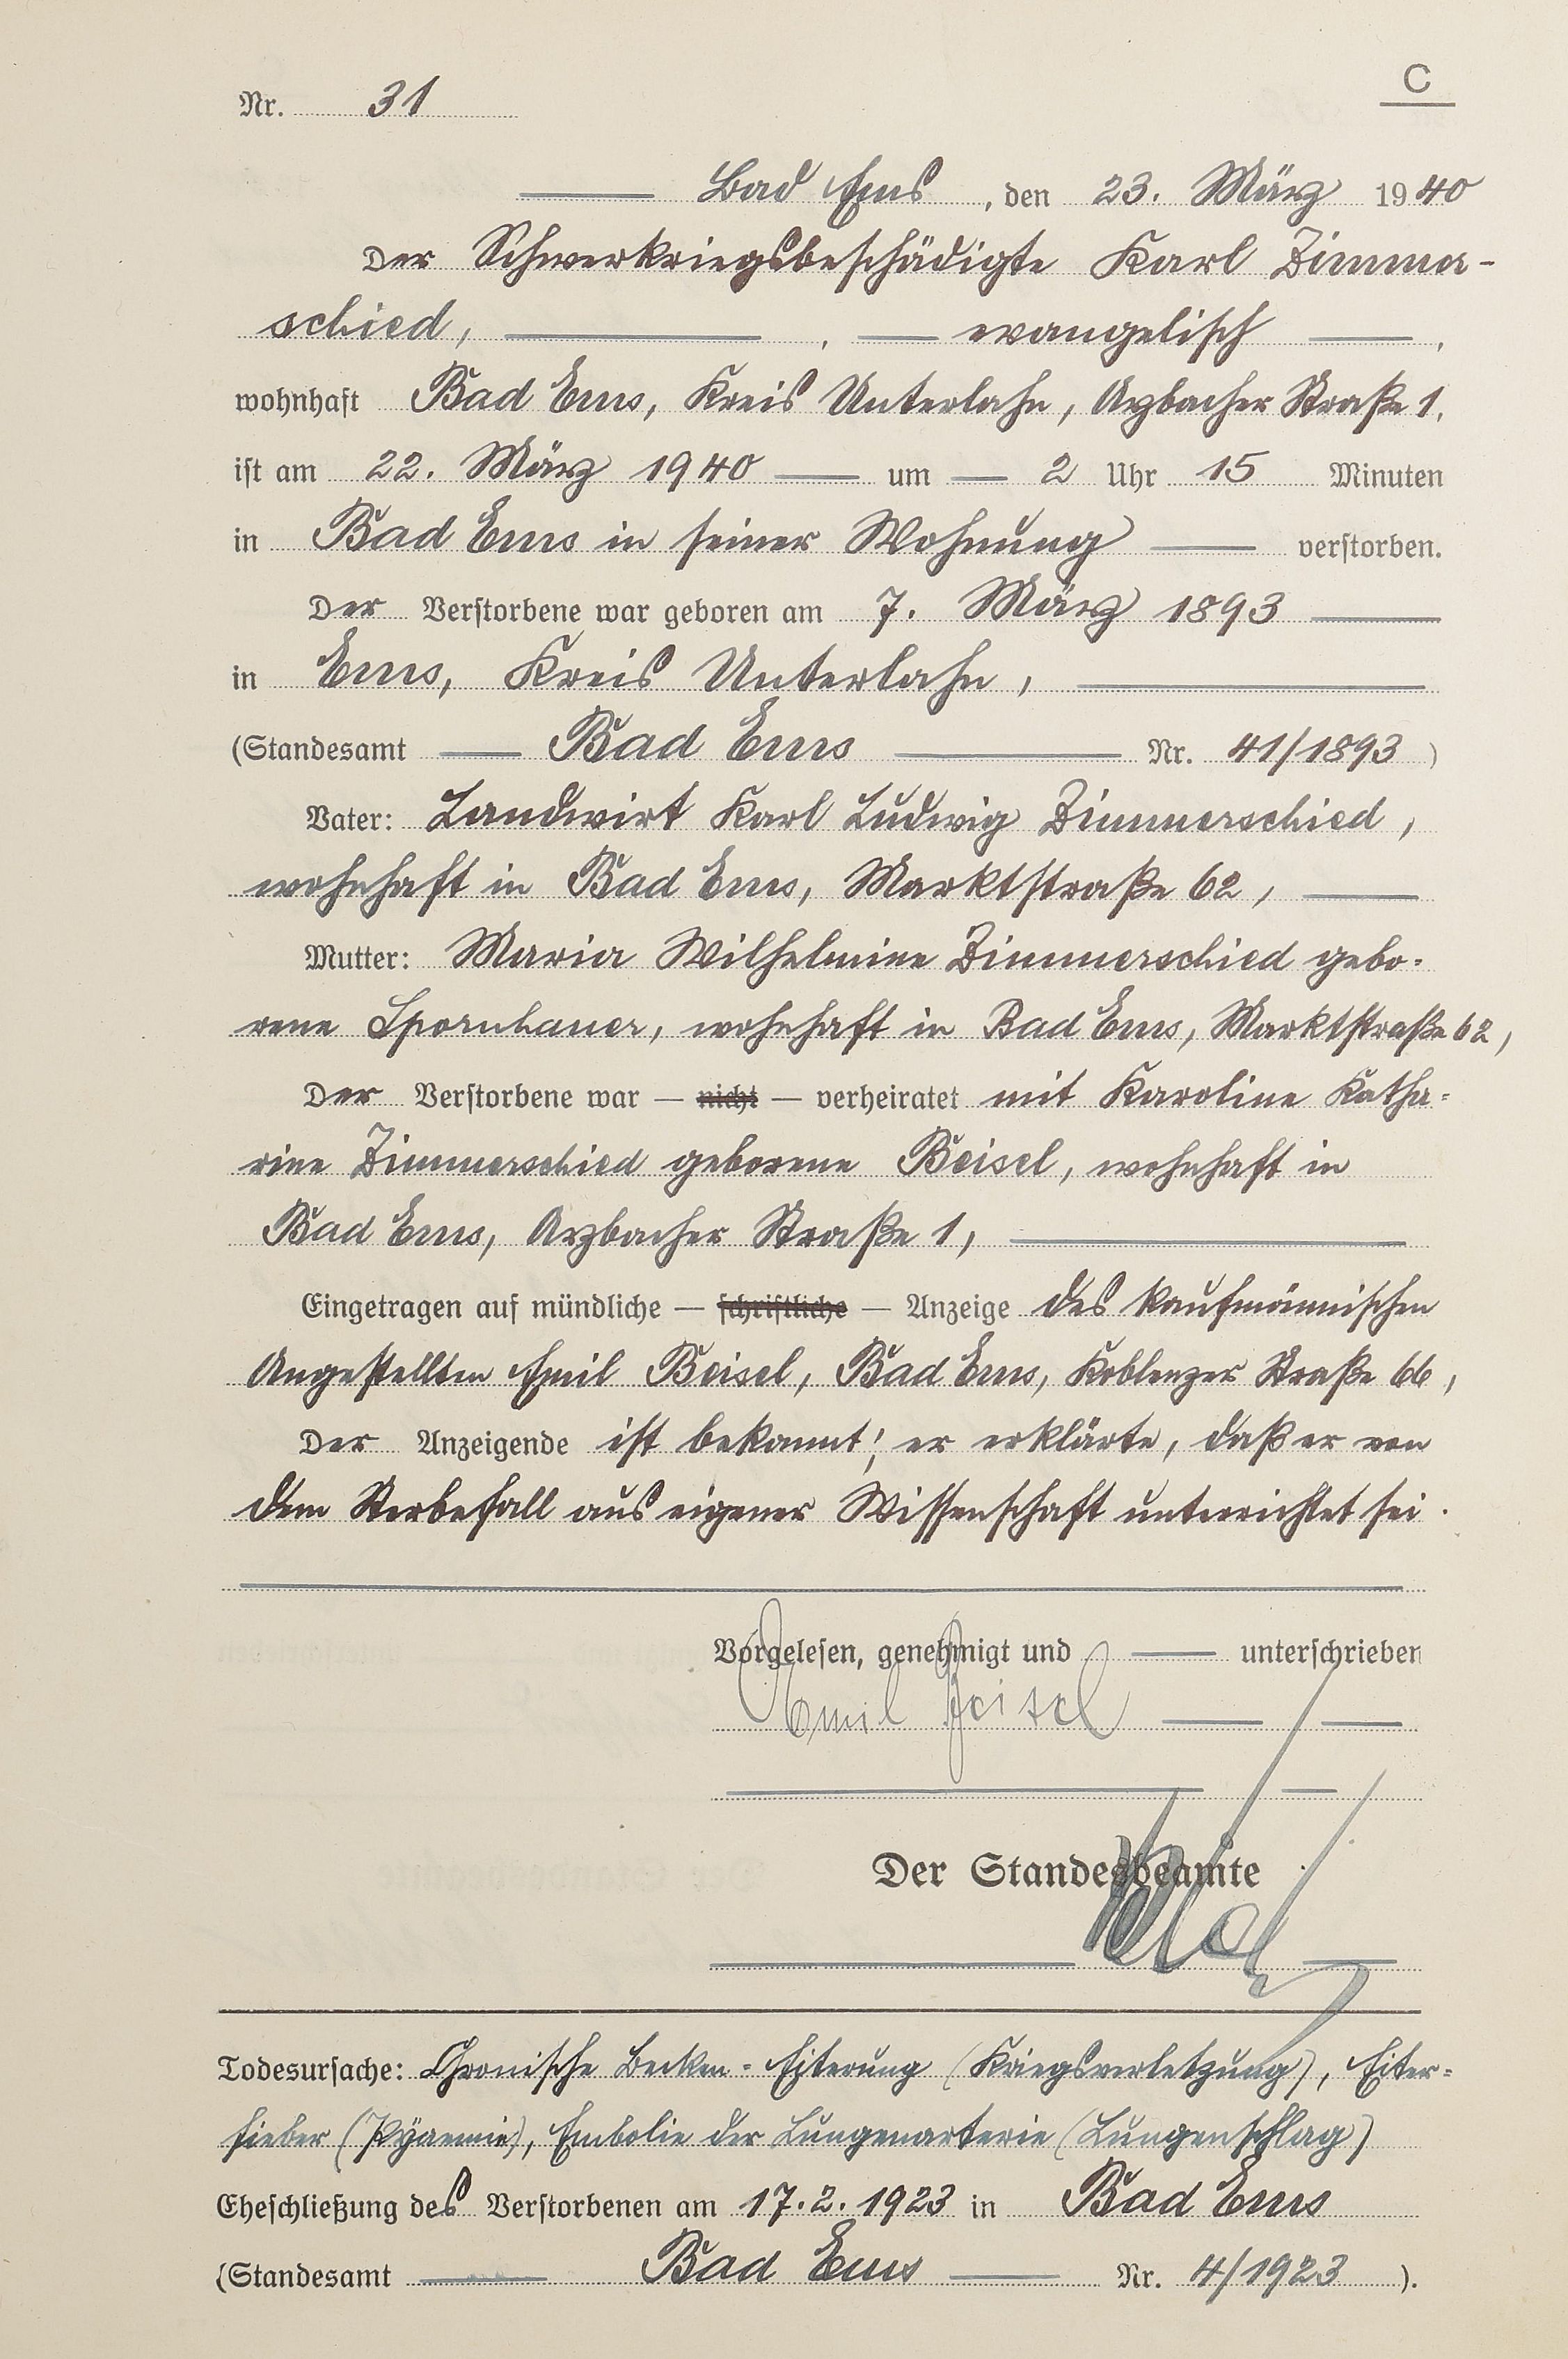 Nr. 31
C
Bad Ems, den 23. März 1940
Der Schwerkriegsbeschädigte Karl Zimmer-
schied, —, — evangelisch —,
wohnhaft Bad Ems, Kreis Unterlahn, Arzbacher Straße 1,
ist am 22. März 1940 — um — 2 Uhr 15 Minuten
in Bad Ems in seiner Wohnung — verstorben.
Der Verstorbene war geboren am 7. März 1893 —
in Ems, Kreis Unterlahn, —
(Standesamt — Bad Ems — Nr. 41/1893)
Vater: Landwirt Karl Ludwig Zimmerschied,
wohnhaft in Bad Ems, Marktstraße 62, —
Mutter: Maria Wilhelmine Zimmerschied gebo-
rene Spornhauer, wohnhaft in Bad Ems, Marktstraße 62,
Der Verstorbene war — nicht — verheiratet mit Karoline Katha-
rine Zimmerschied geborene Beisel, wohnhaft in
Bad Ems, Arzbacher Straße 1, —
Eingetragen auf mündliche — schriftliche — Anzeige des kaufmännischen
Angestellten Emil Beisel, Bad Ems, Koblenzer Straße 66,
Der Anzeigende ist bekannt; er erklärte, daß er von
dem Sterbefall aus eigener Wissenschaft unterrichtet sei.
Vorgelesen, genehmigt und — unterschrieben
Emil Beisel
Der Standesbeamte
Todesursache: Chronische Becken-Eiterung (Kriegsverletzung), Eiter-
fieber (Pyaemie), Embolie der Lungenarterie (Lungenschlag)
Eheschließung des Verstorbenen am 17.2.1923 in Bad Ems
(Standesamt — Bad Ems — Nr. 4/1923).